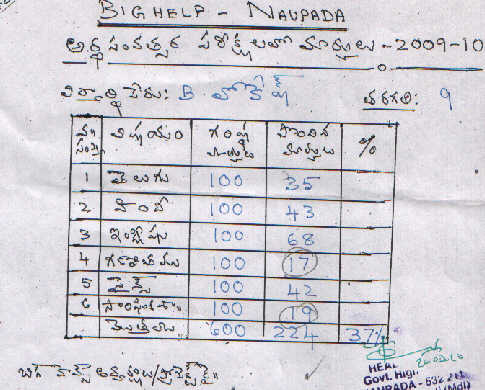 BIG HELP - NAUPADA
అర్థ సంవత్సర పరీక్షలలో మార్కులు - 2009-10
విద్యార్థి పేరు: B లోకేష్ తరగతి: 9
వ. సంఖ్య విషయం గరిష్ట మార్కులు పొందిన మార్కులు %
1 తెలుగు 100 35
2 హింది 100 43
3 ఇంగ్లీషు 100 68
4 గణితము 100 17
5 సైన్స్ 100 42
6 సాంఘిక శా 100 19
మొత్తము 600 224 37%
Govt. High